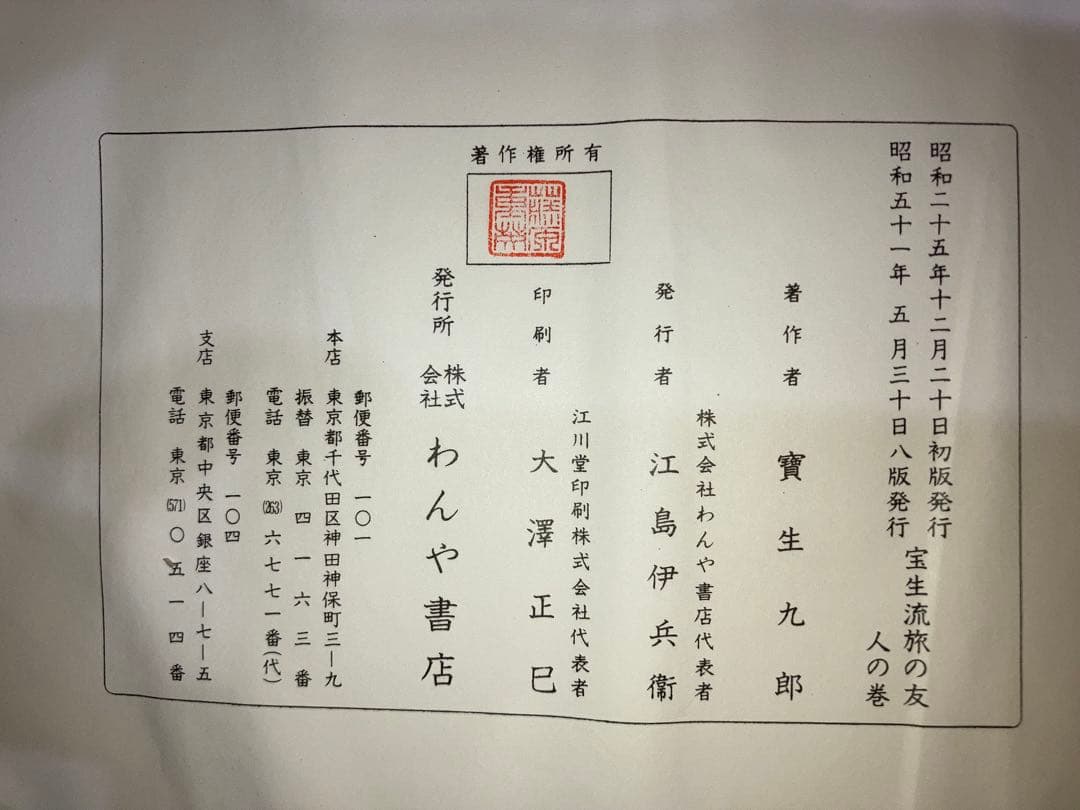 昭和二十五年十二月二十日初版発行
昭和五十一年 五 月三十日八版発行
宝生流旅の友
人の巻
著作者 寶生九郎
株式会社わんや書店代表者
発行者 江島伊兵衞
江川堂印刷株式会社代表者
印刷者 大澤正巳
著作権所有
発行所 株式会社 わんや書店
郵便番号 一〇一
本店 東京都千代田区神田神保町三―九
振替 東京 四一六三番
電話 東京(263)六七七一番(代)
郵便番号 一〇四
支店 東京都中央区銀座八―七―五
電話 東京(571)〇五一四番